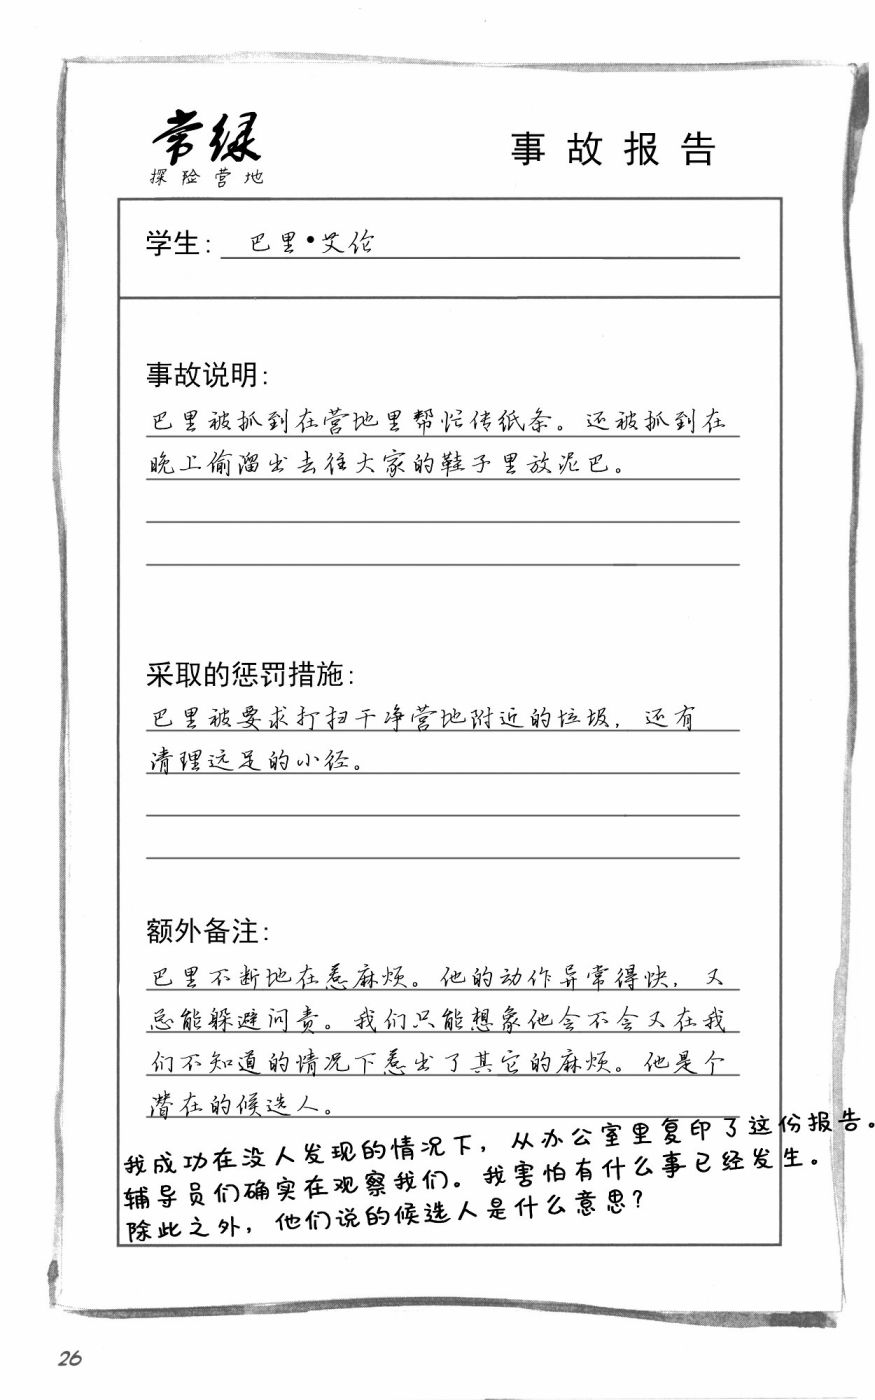 常绿
探险营地
事故报告
学生： 巴里·艾伦
事故说明：
巴里被抓到在营地里帮忙传纸条。还被抓到在
晚上偷溜出去往大家的鞋子里放泥巴。
采取的惩罚措施：
巴里被要求打扫干净营地附近的垃圾，还有
清理远足的小径。
额外备注：
巴里不断地在惹麻烦。他的动作异常得快，又
总能躲避问责。我们只能想象他会不会又在我
们不知道的情况下惹出了其它的麻烦。他是个
潜在的候选人。
我成功在没人发现的情况下，从办公室里复印了这份报告。
辅导员们确实在观察我们。我害怕有什么事已经发生。
除此之外，他们说的候选人是什么意思？
26